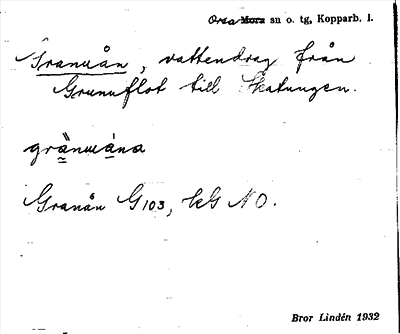 Orsa Mora sn o. tg, Kopparb. l.
Granuån, vattendrag från
Grunuflot till Skatungen.
grànuána
Granån G103, kG NO.
Bror Lindén 1932